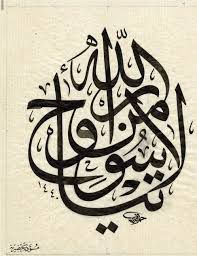 لا تيأسوا من روح الله